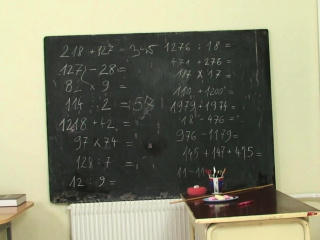 218 + 127 = 345
127 - 28 =
82 × 9 =
114 : 2 = 57
1218 + 42 =
97 × 74 =
128 : 7 =
12 : 9 =
1276 : 18 =
471 + 276 =
117 × 17 =
110 + 1200 =
1979 + 1974 =
18 - 476 =
976 - 1179 =
145 + 147 + 475 =
11 - 11